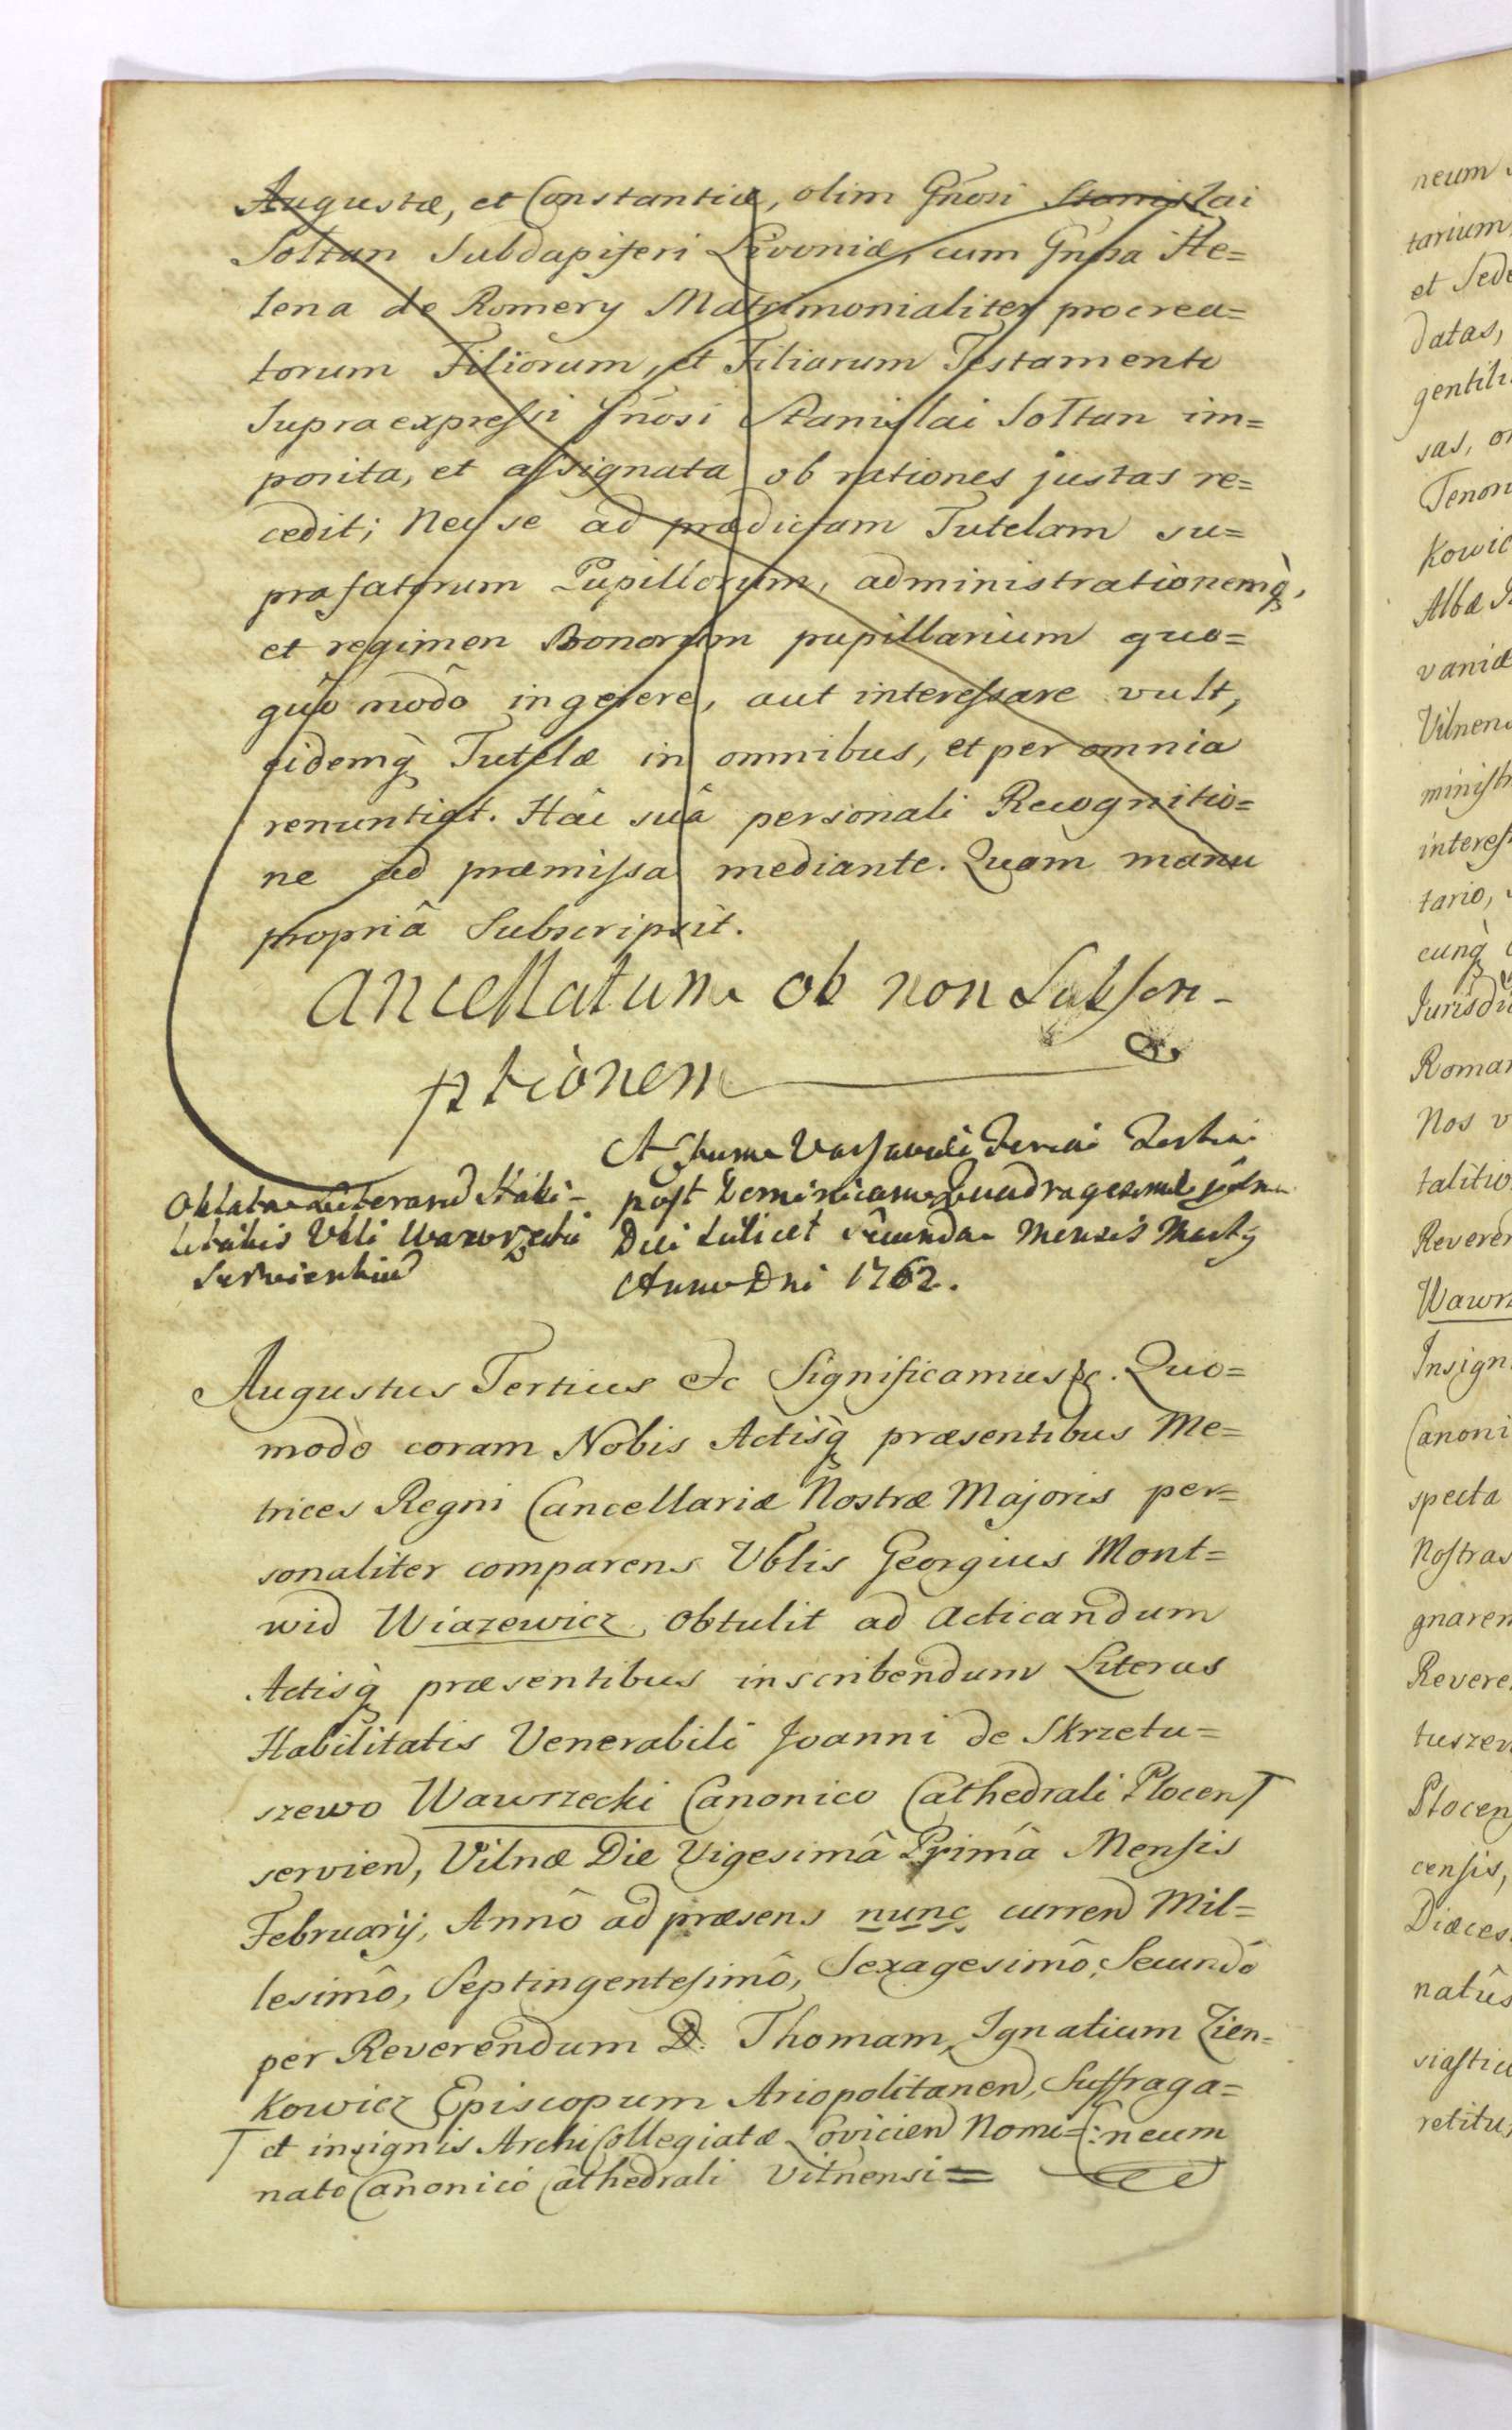 Augustæ, et Constantiæ, olim Gnosi Stanislai
Soltan Subdapiferi Livoniæ, cum Gnsa He=
lena de Romery Matrimonialiter procrea=
torum Filiorum, et Filiarum Testamento
Supra expressi Gnosi Stanislai Soltan im=
posita, et assignata ob rationes justas re=
cedit; Neq se ad prædictam Tutelam su=
prafatorum Pupillorum, administrationemq,
et regimen Bonorum pupillarium quo=
quo modô ingerere, aut interessare vult,
eidemq Tutelæ in omnibus, et per omnia
renuntiat. Hâc suâ personali Recognitio=
ne ad præmissa mediante. Quam manu
propriâ Subscripsit.
Cancellatum ob non Subscri-
ptionem
Actum Varsaviæ Feria Tertia
post Dominicam Quadragesimalem
Die scilicet secunda Mensis Martij
Anno Dni 1762.
Oblata Literarum Habi-
litatis Vbli Wawrzecki
Servientium
Augustus Tertius &c Significamus &c. Quo=
modo coram Nobis Actisq præsentibus Me=
trices Regni Cancellariæ Nostræ Majoris per=
sonaliter comparens Vblis Georgius Mont=
wid Wiazewicz, obtulit ad Acticandum
Actisq præsentibus inscribendum Literas
Habilitatis Venerabili Joanni de Skrzetu=
szewo Wawrzecki Canonico Cathedrali Plocen
servien, Vilnæ Die Vigesimâ Primâ Mensis
Februarij, Annô ad præsens nunc curren Mil=
lesimô, Septingentesimô, Sexagesimô, Secundô
per Reverendum D. Thomam, Ignatium Zien=
kowicz Episcopum Ariopolitanen, Suffraga=
(:neum
et insignis Archi Collegiatæ Lovicien Nomi=
nato Canonico Cathedrali Vilnensi=
neum
tarium
et Sede
datas,
gentili
sas,
Tenor
kowic
Albæ
vaniæ
Vilnens
ministr
interess
tario,
cunq
Jurisdic
Roman
Nos v
talitio
Reveren
Wawrz
Insign
Canoni
specta
Nostras
gnaren
Revere
tuszew
Plocen
censis,
Diæces
natûs
siastic
retitu